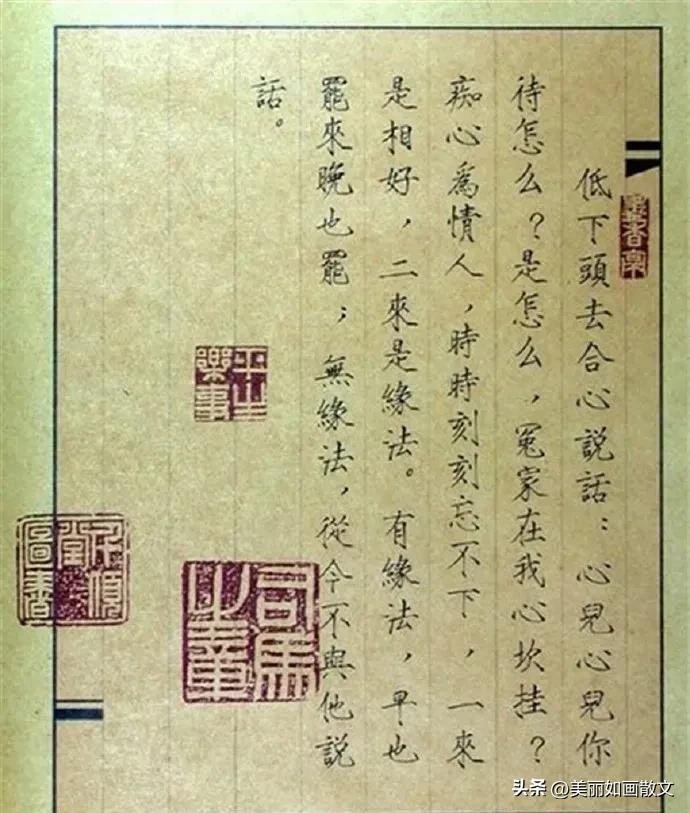 低下頭去合心説話：心兒心兒你
待怎么？是怎么，冤家在我心坎挂？
痴心爲情人，時時刻刻忘不下，一來
是相好，二來是緣法。有緣法，早也
罷來晚也罷；無緣法，從今不與他説
話。
平生
樂事
司馬
之章
头条 @美丽如画散文